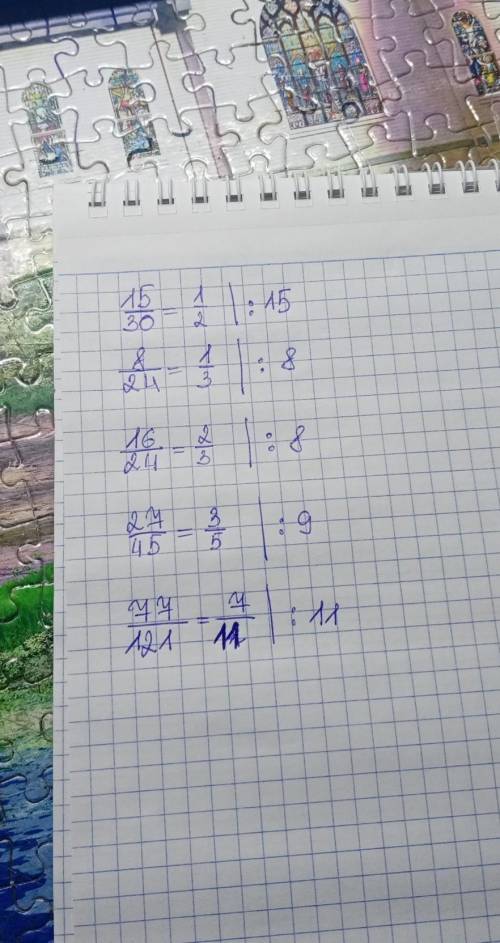 15/30 = 1/2 | : 15
8/24 = 1/3 | : 8
16/24 = 2/3 | : 8
27/45 = 3/5 | : 9
77/121 = 7/11 | : 11